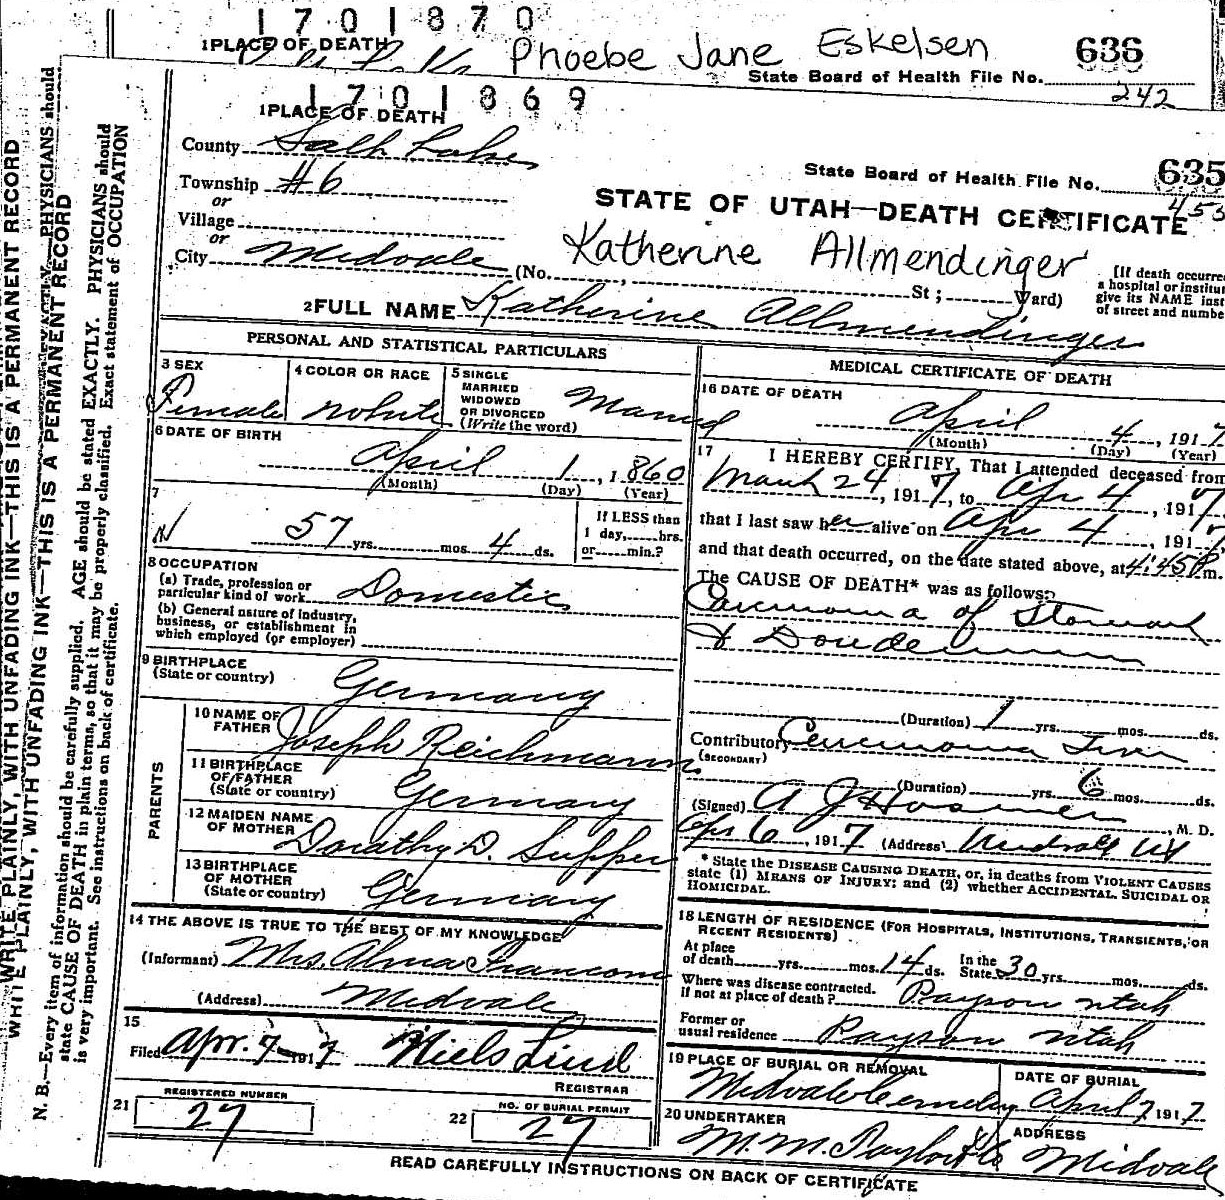 1701870
1 PLACE OF DEATH
Phoebe Jane Eskelsen
636
State Board of Health File No.
242
1701869
1 PLACE OF DEATH
County Salt Lake
State Board of Health File No. 635
453
Township #6
or
STATE OF UTAH—DEATH CERTIFICATE
Village
or
Katherine Allmendinger
City Midvale (No. St; Ward)
[If death occurre
a hospital or institut
give its NAME inst
of street and numbe
2 FULL NAME Katherine Allmendinger
PERSONAL AND STATISTICAL PARTICULARS
3 SEX
Female
4 COLOR OR RACE
White
5 SINGLE
MARRIED
WIDOWED
OR DIVORCED
(Write the word)
Married
6 DATE OF BIRTH
April 1, 1860
(Month) (Day) (Year)
7
57 yrs. mos. 4 ds.
If LESS than
1 day, hrs.
or min.?
8 OCCUPATION
(a) Trade, profession or
particular kind of work Domestic
(b) General nature of industry,
business, or establishment in
which employed (or employer)
9 BIRTHPLACE
(State or country) Germany
PARENTS
10 NAME OF
FATHER Joseph Reichmann
11 BIRTHPLACE
OF FATHER
(State or country) Germany
12 MAIDEN NAME
OF MOTHER Dorathy D. Supper
13 BIRTHPLACE
OF MOTHER
(State or country) Germany
14 THE ABOVE IS TRUE TO THE BEST OF MY KNOWLEDGE
(Informant) Mrs. Alma Francom
(Address) Midvale
15
Filed Apr. 7 1917 Niels Lind
REGISTRAR
REGISTERED NUMBER
21 27
NO. OF BURIAL PERMIT
22 27
MEDICAL CERTIFICATE OF DEATH
16 DATE OF DEATH
April 4, 1917
(Month) (Day) (Year)
17 I HEREBY CERTIFY, That I attended deceased from
March 24, 1917, to Apr 4, 1917,
that I last saw her alive on Apr 4, 1917,
and that death occurred, on the date stated above, at 4:45 P m.
The CAUSE OF DEATH* was as follows:
Carcinoma of Stomach
& Doudenum
(Duration) 1 yrs. mos. ds.
Contributory Carcinoma Liver
(SECONDARY)
(Duration) yrs. 6 mos. ds.
(Signed) A J Hosmer, M. D.
Apr 6, 1917 (Address) Midvale Ut
* State the DISEASE CAUSING DEATH, or, in deaths from VIOLENT CAUSES
state (1) MEANS OF INJURY; and (2) whether ACCIDENTAL, SUICIDAL OR
HOMICIDAL.
18 LENGTH OF RESIDENCE (FOR HOSPITALS, INSTITUTIONS, TRANSIENTS, OR
RECENT RESIDENTS)
At place
of death yrs. mos. 14 ds.
In the
State 30 yrs. mos. ds.
Where was disease contracted,
if not at place of death? Payson Utah
Former or
usual residence Payson Utah
19 PLACE OF BURIAL OR REMOVAL
Midvale Cemetery
DATE OF BURIAL
April 7 1917
20 UNDERTAKER
M. M.
ADDRESS
Midvale
READ CAREFULLY INSTRUCTIONS ON BACK OF CERTIFICATE
WRITE PLAINLY, WITH UNFADING INK—THIS IS A PERMANENT RECORD
WRITE PLAINLY, WITH UNFADING INK—THIS IS A PERMANENT RECORD
N. B.—Every item of information should be carefully supplied. AGE should be stated EXACTLY. PHYSICIANS should
state CAUSE OF DEATH in plain terms, so that it may be properly classified. Exact statement of OCCUPATION
is very important. See instructions on back of certificate.